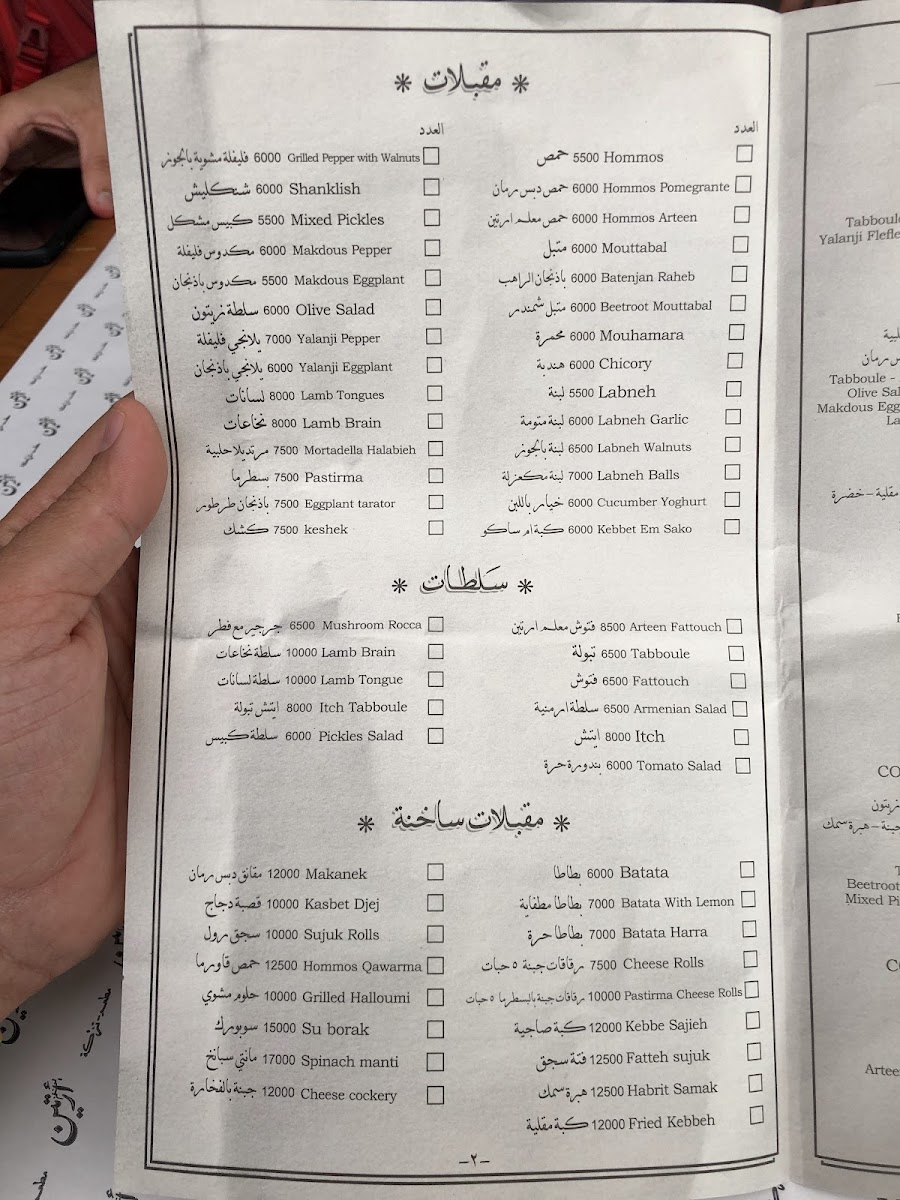 * مقبلات *
العدد
حمص 5500 Hommos
حمص دبس رمان 6000 Hommos Pomegrante
حمص معلم ارتين 6000 Hommos Arteen
متبل 6000 Mouttabal
باذنجان الراهب 6000 Batenjan Raheb
متبل شمندر 6000 Beetroot Mouttabal
محمرة 6000 Mouhamara
هندبة 6000 Chicory
لبنة 5500 Labneh
لبنة متومة 6000 Labneh Garlic
لبنة بالجوز 6500 Labneh Walnuts
لبنة مكعزلة 7000 Labneh Balls
خيار باللبن 6000 Cucumber Yoghurt
كبة ام ساكو 6000 Kebbet Em Sako
العدد
فليفلة مشوية بالجوز 6000 Grilled Pepper with Walnuts
شنكليش 6000 Shanklish
كبيس مشكل 5500 Mixed Pickles
مكدوس فليفلة 6000 Makdous Pepper
مكدوس باذنجان 5500 Makdous Eggplant
سلطة زيتون 6000 Olive Salad
يلانجي فليفلة 7000 Yalanji Pepper
يلانجي باذنجان 6000 Yalanji Eggplant
لسانات 8000 Lamb Tongues
نخاعات 8000 Lamb Brain
مرتديلا حلبية 7500 Mortadella Halabieh
بسطرما 7500 Pastirma
باذنجان طرطور 7500 Eggplant tarator
كشك 7500 keshek
* سَلطات *
فتوش معلم ارتين 8500 Arteen Fattouch
تبولة 6500 Tabboule
فتوش 6500 Fattouch
سلطة ارمنية 6500 Armenian Salad
ايتش 8000 Itch
بندورة حرة 6000 Tomato Salad
جرجير مع فطر 6500 Mushroom Rocca
سلطة نخاعات 10000 Lamb Brain
سلطة لسانات 10000 Lamb Tongue
ايتش تبولة 8000 Itch Tabboule
سلطة كبيس 6000 Pickles Salad
* مقبلات ساخنة *
بطاطا 6000 Batata
بطاطا مطفاية 7000 Batata With Lemon
بطاطا حرة 7000 Batata Harra
رقاقات جبنة ٥ حبات 7500 Cheese Rolls
رقاقات جبنة بالبسطرما ٥ حبات 10000 Pastirma Cheese Rolls
كبة صاجية 12000 Kebbe Sajieh
فتة سجق 12500 Fatteh sujuk
هبرة سمك 12500 Habrit Samak
كبة مقلية 12000 Fried Kebbeh
مقانق دبس رمان 12000 Makanek
قصبة دجاج 10000 Kasbet Djej
سجق رول 10000 Sujuk Rolls
حمص قاورما 12500 Hommos Qawarma
حلوم مشوي 10000 Grilled Halloumi
سوبورك 15000 Su borak
مانتي سبانخ 17000 Spinach manti
جبنة بالفخارة 12000 Cheese cockery
-٢-
Tabboule
Yalanji Flefle
Tabboule -
Olive Sal
Makdous Egg
La
مقلية - خضرة
CO
زيتون
هبرة سمك
Beetroot
Mixed Pi
Artee